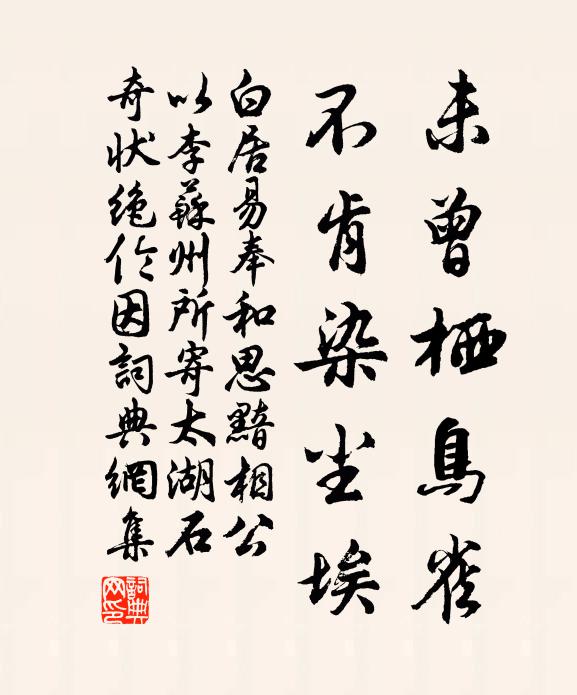 未曾栖鳥雀
不肯染尘埃
白居易奉和思黯相公
以李蘇州所寄太湖石
奇状絶伦因詞典網集
詞典网印